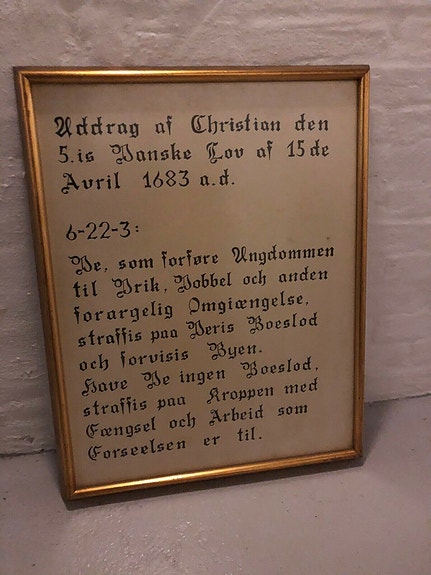 Uddrag af Christian den
5. is Danske Lov af 15 de
Avril 1683 a.d.
6-22-3:
De, som forføre Ungdommen
til Drik, Dobbel och anden
forargelig Omgiængelse,
straffis paa Deris Boeslod
och forvisis Byen.
Have De ingen Boeslod,
straffis paa Kroppen med
Fængsel och Arbeid som
Forseelsen er til.